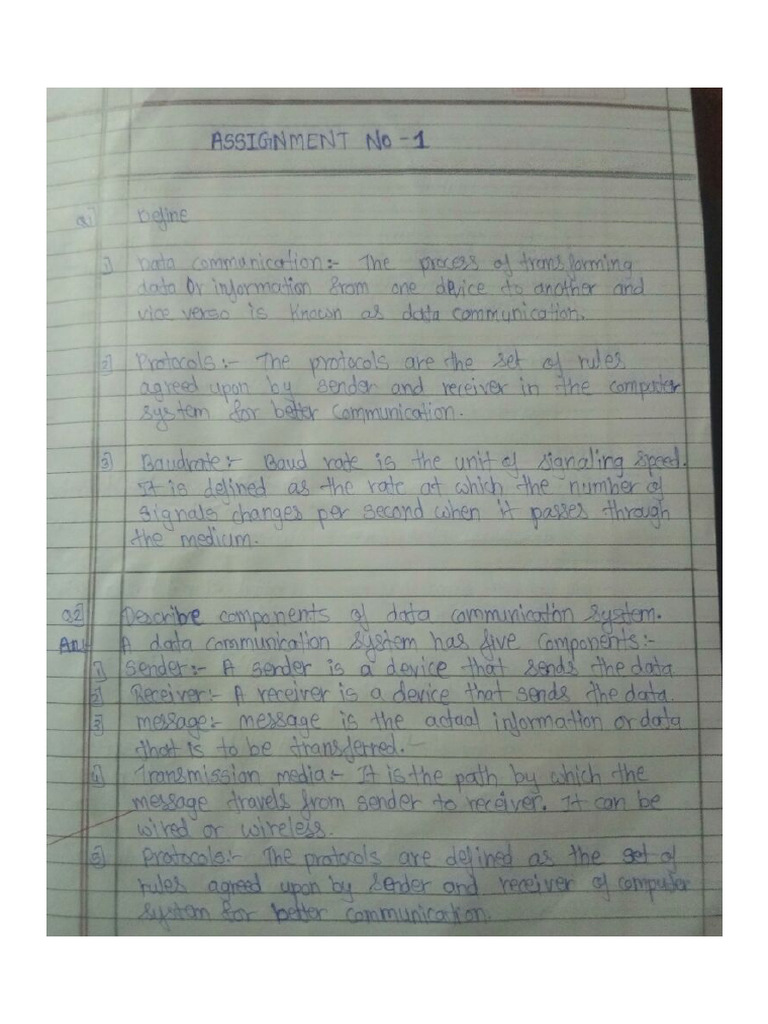 ASSIGNMENT No -1
Q1] Define
1) Data communication:- The process of transforming
data or information from one device to another and
vice verso is known as data communication.
2] Protocols:- The protocols are the set of rules
agreed upon by sender and receiver in the computer
system for better communication.
3] Baudrate:- Baud rate is the unit of signaling speed.
It is defined as the rate at which the number of
signals changes per second when it passes through
the medium.
Q2] Describe components of data communication system.
Ans A data communication system has five components:-
1] Sender:- A sender is a device that sends the data
2] Receiver:- A receiver is a device that sends the data.
3] message:- message is the actual information or data
that is to be transferred.-
4] Transmission media:- It is the path by which the
message travels from sender to receiver. It can be
wired or wireless.
5] Protocols:- The protocols are defined as the set of
rules agreed upon by sender and receiver of computer
system for better communication.